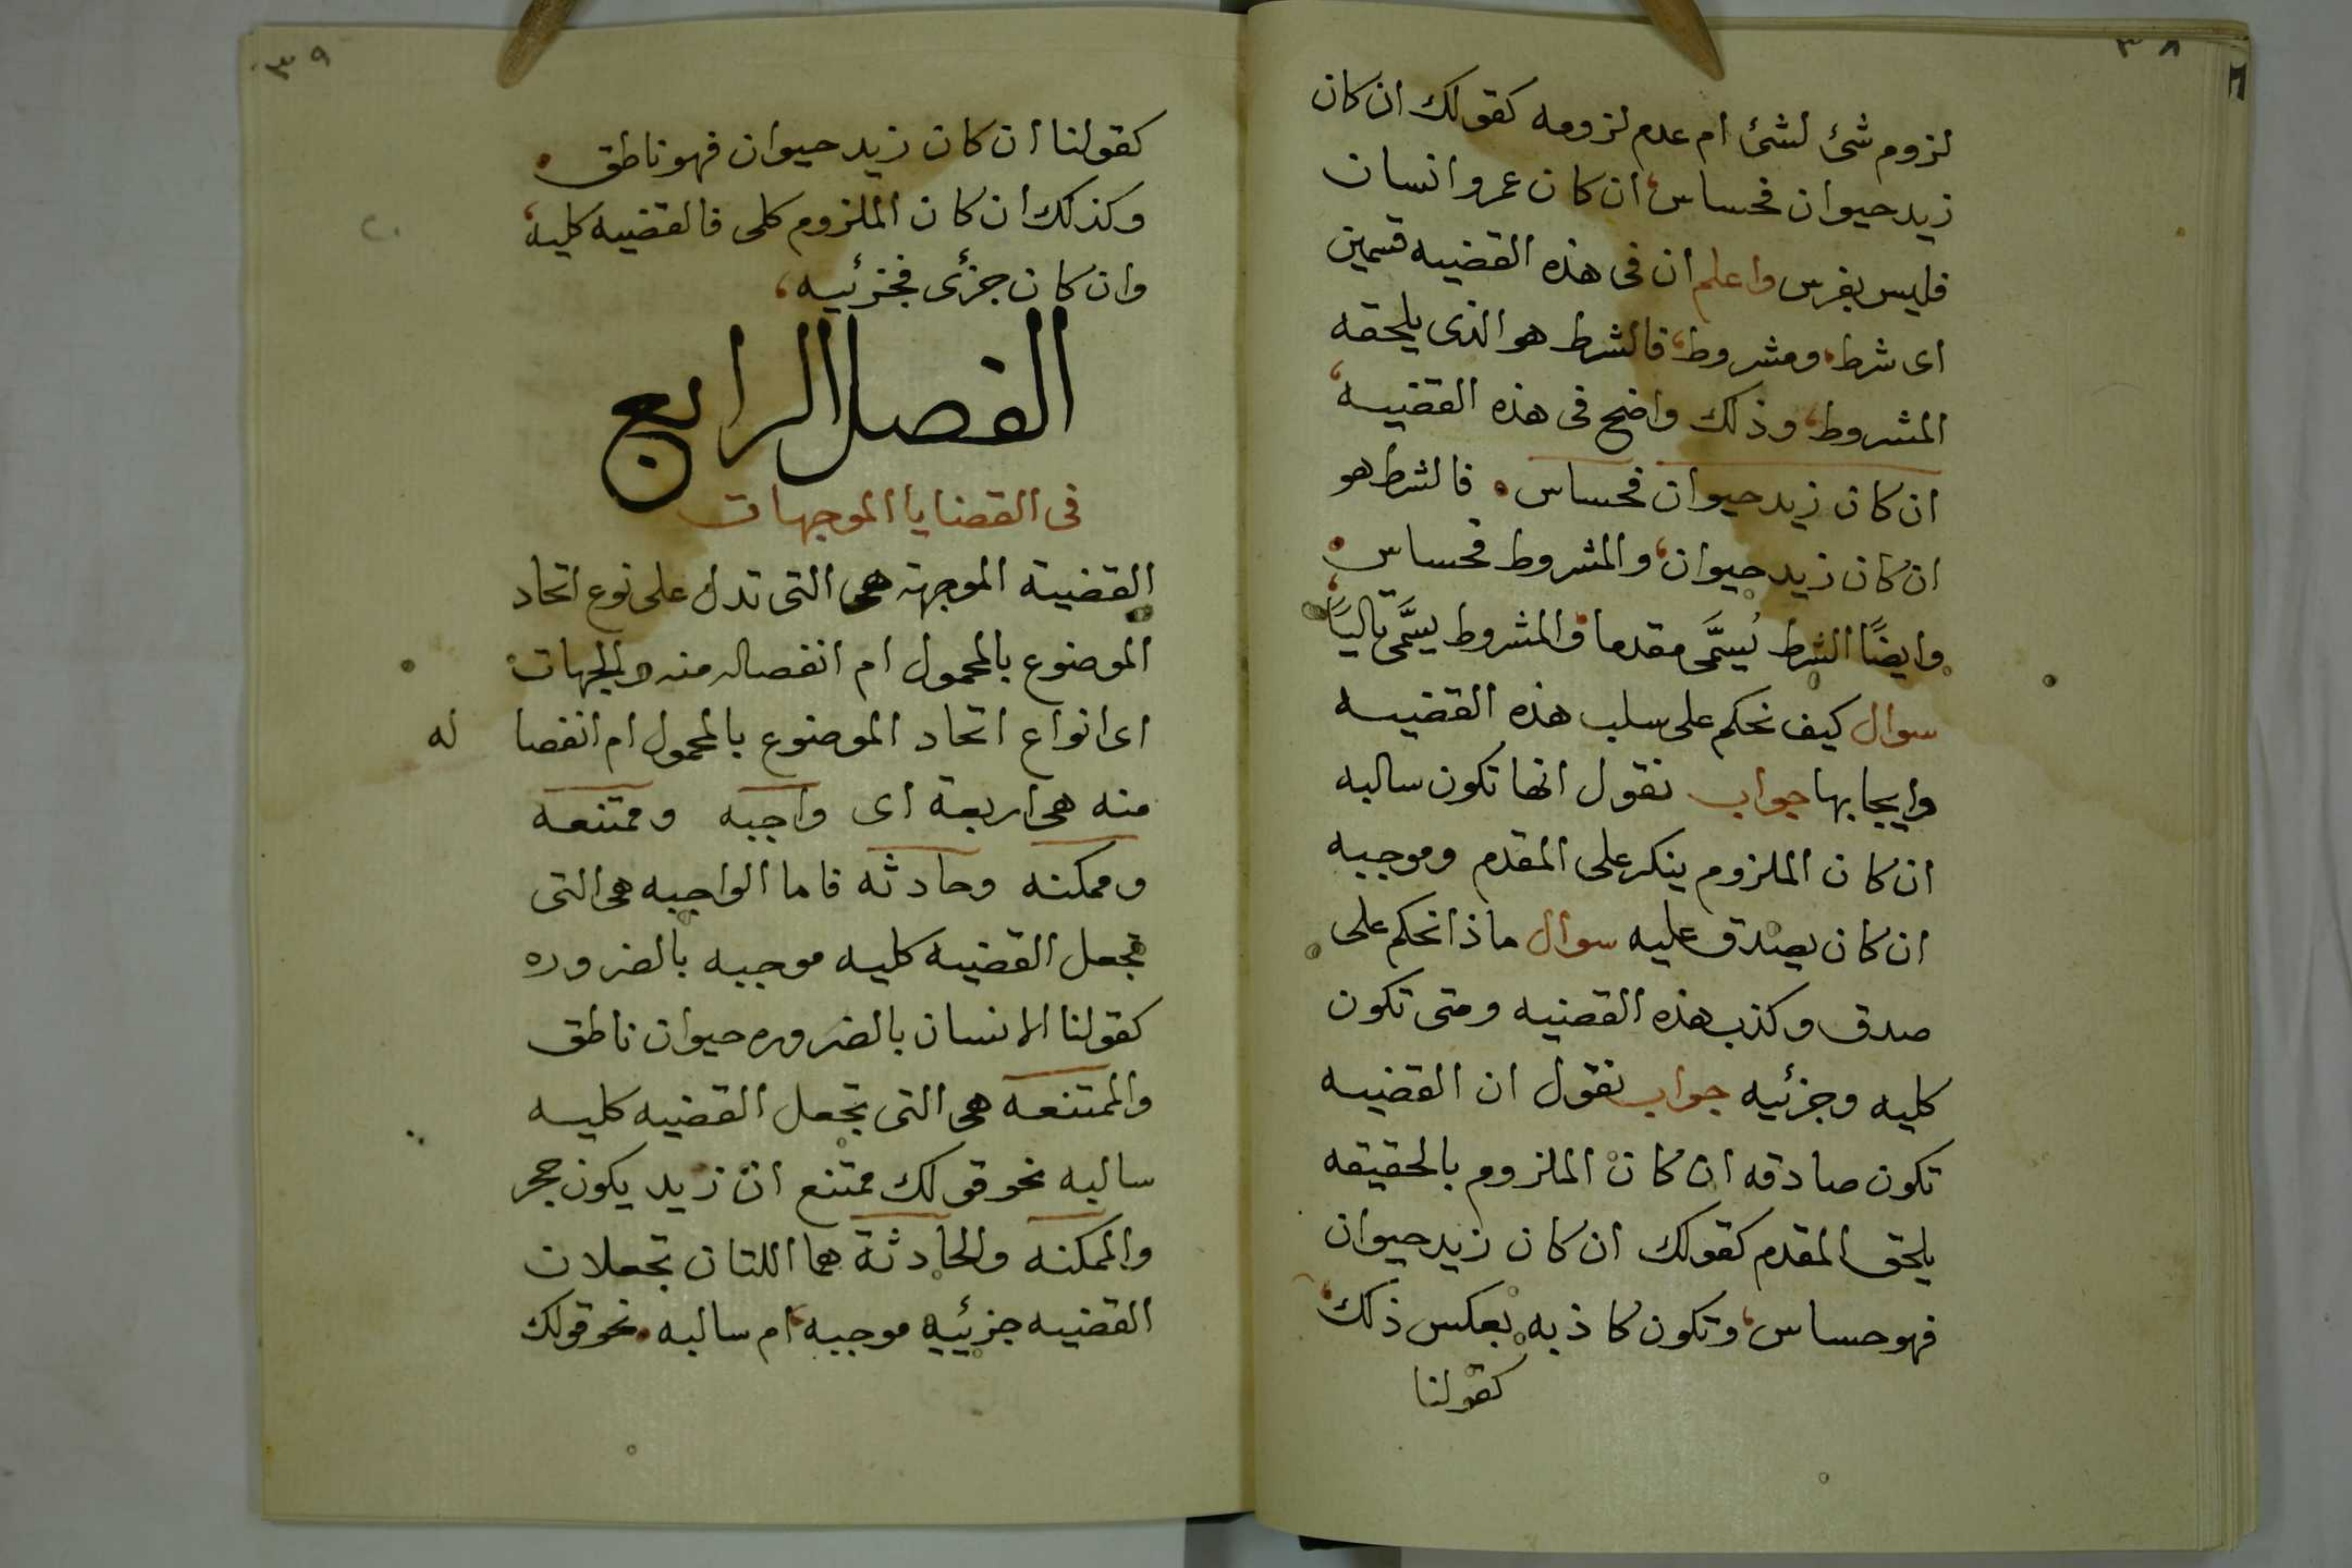 ٣٨
لزوم شئ لشئ ام عدم لزومه كقولك ان كان
زيد حيوان فحساس، ان كان عمرو انسان
فليس بفرس واعلم ان فى هذه القضيه قسمين
اى شرط، ومشروط، فالشرط هو الذى يلحقه
المشروط، وذلك واضح فى هذه القضيه،
ان كان زيد حيوان فحساس. فالشرط هو
ان كان زيد حيوان، والمشروط فحساس.
وايضًا الشرط يُسَمَّى مقدما والمشروط يسَمَّى تاليًا،
سوال كيف نحكم على سلب هذه القضيه
وايجابها جواب نقول انها تكون سالبه
ان كان الملزوم ينكر على المقدم وموجبه
ان كان يصدق عليه سوال ماذا نحكم على
صدق وكذب هذه القضيه ومتى تكون
كليه وجزئيه جواب نقول ان القضيه
تكون صادقه ان كان الملزوم بالحقيقه
يلحق المقدم كقولك ان كان زيد حيوان
فهو حساس، وتكون كاذبه بعكس ذلك،
كقولنا
٣٩
كقولنا ان كان زيد حيوان فهو ناطق.
وكذلك ان كان الملزوم كلى فالقضيه كليه،
وان كان جزئى فجزئيه،
الفصل الرابع
فى القضايا الموجهات
القضية الموجهة هى التى تدل على نوع اتحاد
الموضوع بالمحمول ام انفصاله منه والجهات
اى انواع اتحاد الموضوع بالمحمول ام انفصاله
منه هى اربعة اى واجبه وممتنعه
وممكنه وحادثه فاما الواجبه هى التى
تجعل القضيه كليه موجبه بالضروره
كقولنا الانسان بالضروره حيوان ناطق
والممتنعه هى التى تجعل القضيه كليه
سالبه نحو قولك ممتنع ان زيد يكون حجر
والممكنه والحادثة هما اللتان تجعلان
القضيه جزئييه موجبه، ام سالبه. نحو قولك